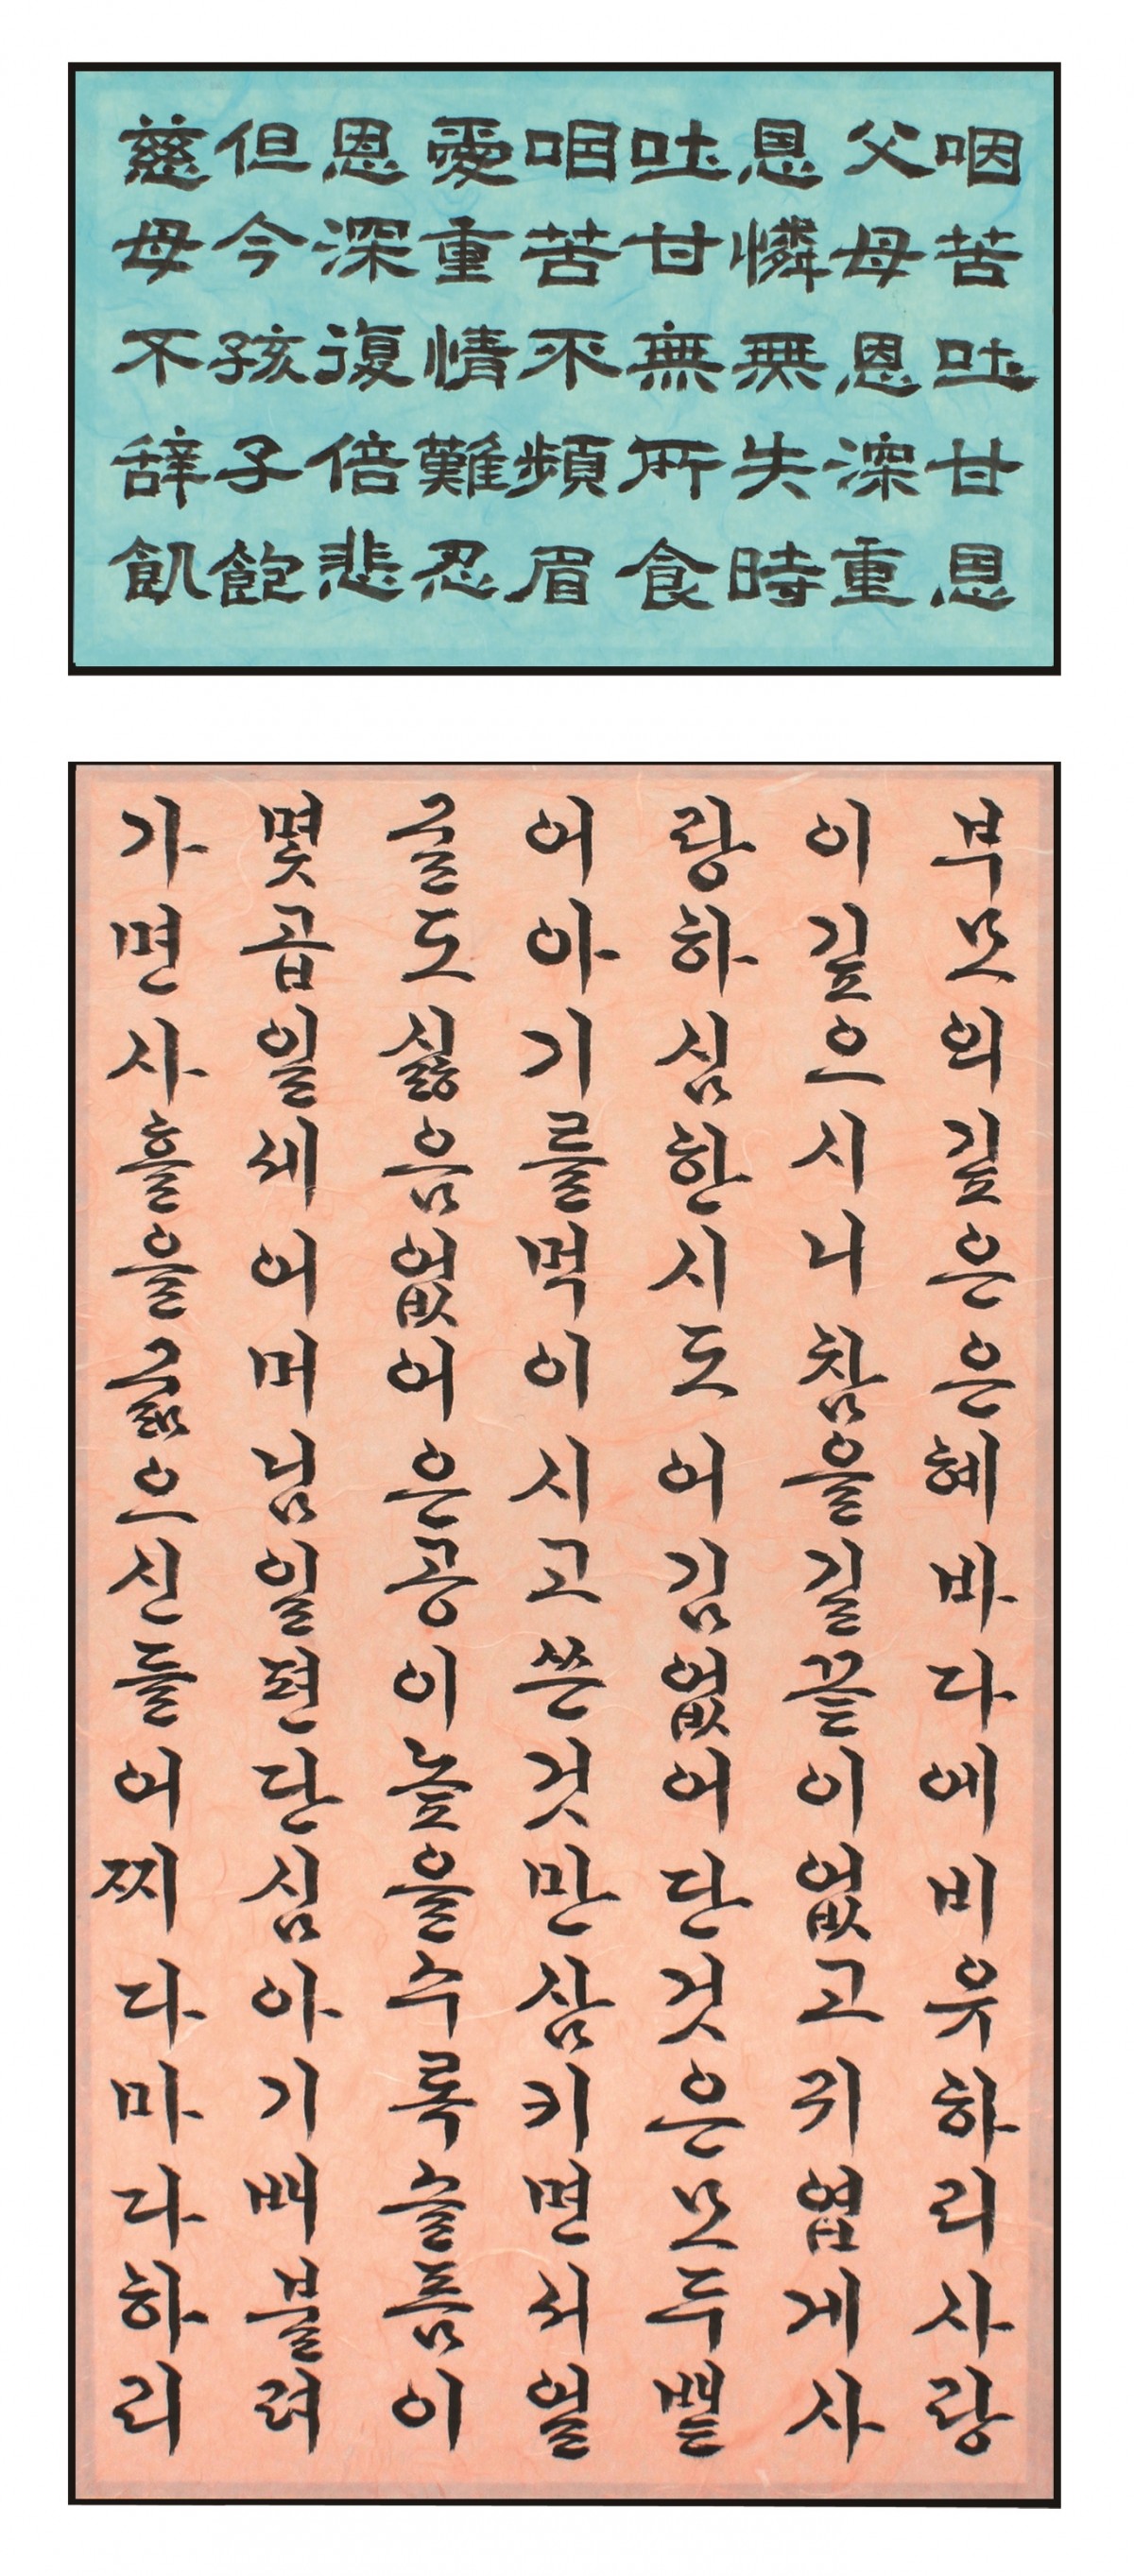 咽苦吐甘恩
父母恩深重
恩憐無失時
吐甘無所食
咽苦不頻眉
愛重情難忍
恩深復倍悲
但今孩子飽
慈母不辞飢
부모의깊은은혜바다에비유하리사랑
이깊으시니참을길끝이없고귀엽게사
랑하심한시도어김없어단것은모두뱉
어아기를먹이시고쓴것만삼키면서얼
굴도싫음없어은공이높을수록슬픔이
몇곱일세어머님일편단심아기배불려
가면사흘을굶으신들어찌다마다하리